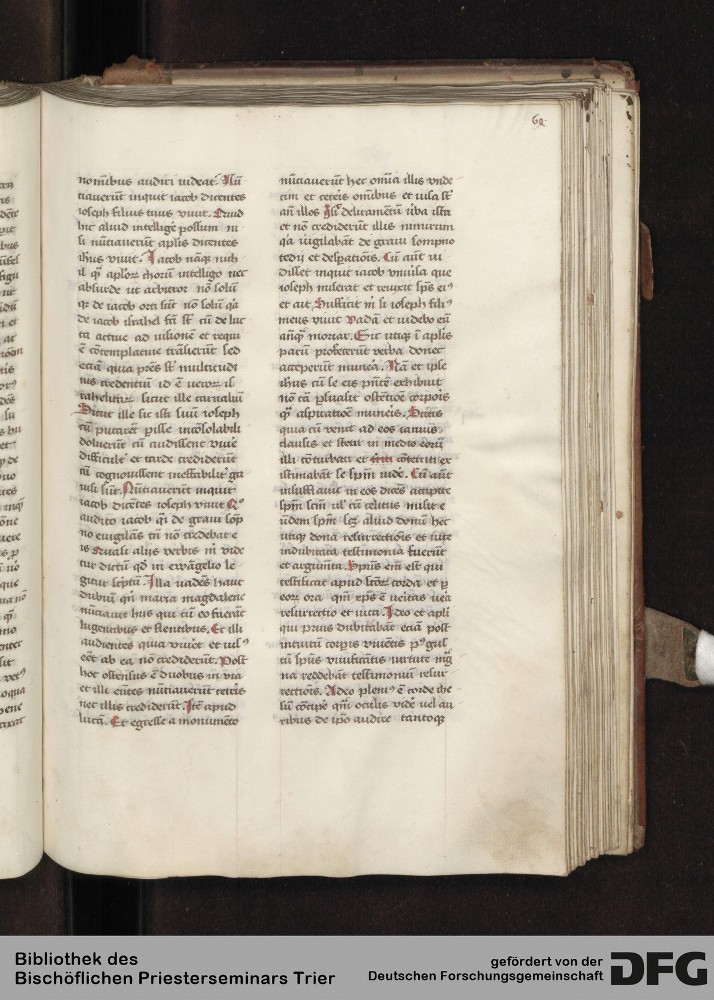 69
nominibus audiri videat. Nū
tiaverūt inquit iacob dicentes
ioseph filius tuus vivit. Quid
hic aliud intelligẽ possum ni
si nūtiaverūt aplis dicentes
ihus vivit. Iacob nāqꝫ nich
il qͥ aplorꝫ chorū intelligo nec
absurde ut arbitror nō solū
qꝛ de iacob orti sūt nō solū qͥa
de iacob israhel
ta active ad visionē et requi
ē cōtemplative trāsierūt sed
etiā quia
nis credentiū id ē verorꝫ il
rahelitarꝫ sicut ille carnaliū
Dicut ille sic isti suū ioseph
cū putarēt pisse incōsolabili
doluerūt cū audissent vivẽ
difficulẽ et tarde crediderūt
cū cognovissent ineffabilit̾ ga
visi sūt. Nūtiaverūt inquit
iacob dicētes ioseph vivit Qͦ
audito iacob qͥ de gravi sōp
no evigilās tn̄ nō credebat e
is Quali alijs verbis m̄ vide
tur dictū qd̄ in ewāgelio le
gitur scptū. Illa vadēs haut
dubiū qn̄ maria magdalene
nūtiavit hus qui cū eo fuerāt
lugentibus et flentibus. Et illi
audientes quia viviet et vis
eēt ab ea nō crediderūt. Post
hoc ostensus ē duobus in via
et illi eūtes nūtiaverūt ceteris
nec illis crediderūt. Itē apud
lucā. Et egresse a monumēto
nūtiaverūt hec omīa illis vnde
cim et ceteis omībus et visa st̄
an̄ illos sic̄ deliramētū v̾ba ista
et nō crediderūt illis nimirum
qͥa vigilabāt de gravi sompno
tedii et desperationis. Cū aūt vi
disset inquit iacob universa que
ioseph miserat et revixit sps eiꝰ
et ait Sufficit m̄ si ioseph filiꝰ
meus vivit vadā et videbo eū
ānqͣ moriar. Sic utiqꝫ ī aplis
parū profecerūt verba donec
acceperūt munera. Nā et ipse
ihus cū se eis pn̄tē exhibuit
nō tā psuasit ostēsiōe corpois
qͣ aspiratiōe muneis. Scitis
quia cū venit ad eos ianuis
clausis et stetit in medio eorū
illi cōturbati et cōterriti ex
istimabāt se spm̄ vidẽ. Cū aūt
insufflavit in eos dicēs accipite
spm̄ scm̄ vl̾ cū celitus misit e
ūdem spm̄ scꝫ aliud donū hec
utiqꝫ dona resurrectionis et vite
indubitata testimonia fuerūt
et argumīta. Spūs em̄ est qui
testificat apud scōrꝫ corda et p
eorꝫ ora qm̄ xp̄s ē veritas vera
resurrectio et vita. Ideo et apli
qui prius dubitabāt etiā post
intuitū corpis viventis pꝰ gus
tū spūs vivificātis virtute mḡ
na reddebāt testimoniū resur
rectiois. Adeo plenꝰ ē corde ihe
sū cōcipẽ qm̄ oculis vidẽ vel au
ribus de ipo audire tantoqꝫ
Bibliothek des
Bischöflichen Priesterseminars Trier
gefördert von der
Deutschen Forschungsgemeinschaft
DFG